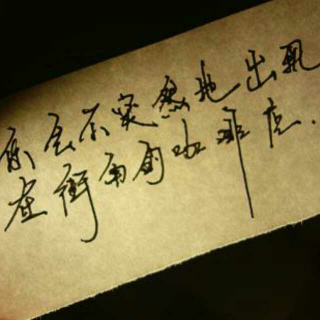 你会不会突然地出现
在街角的咖啡店.